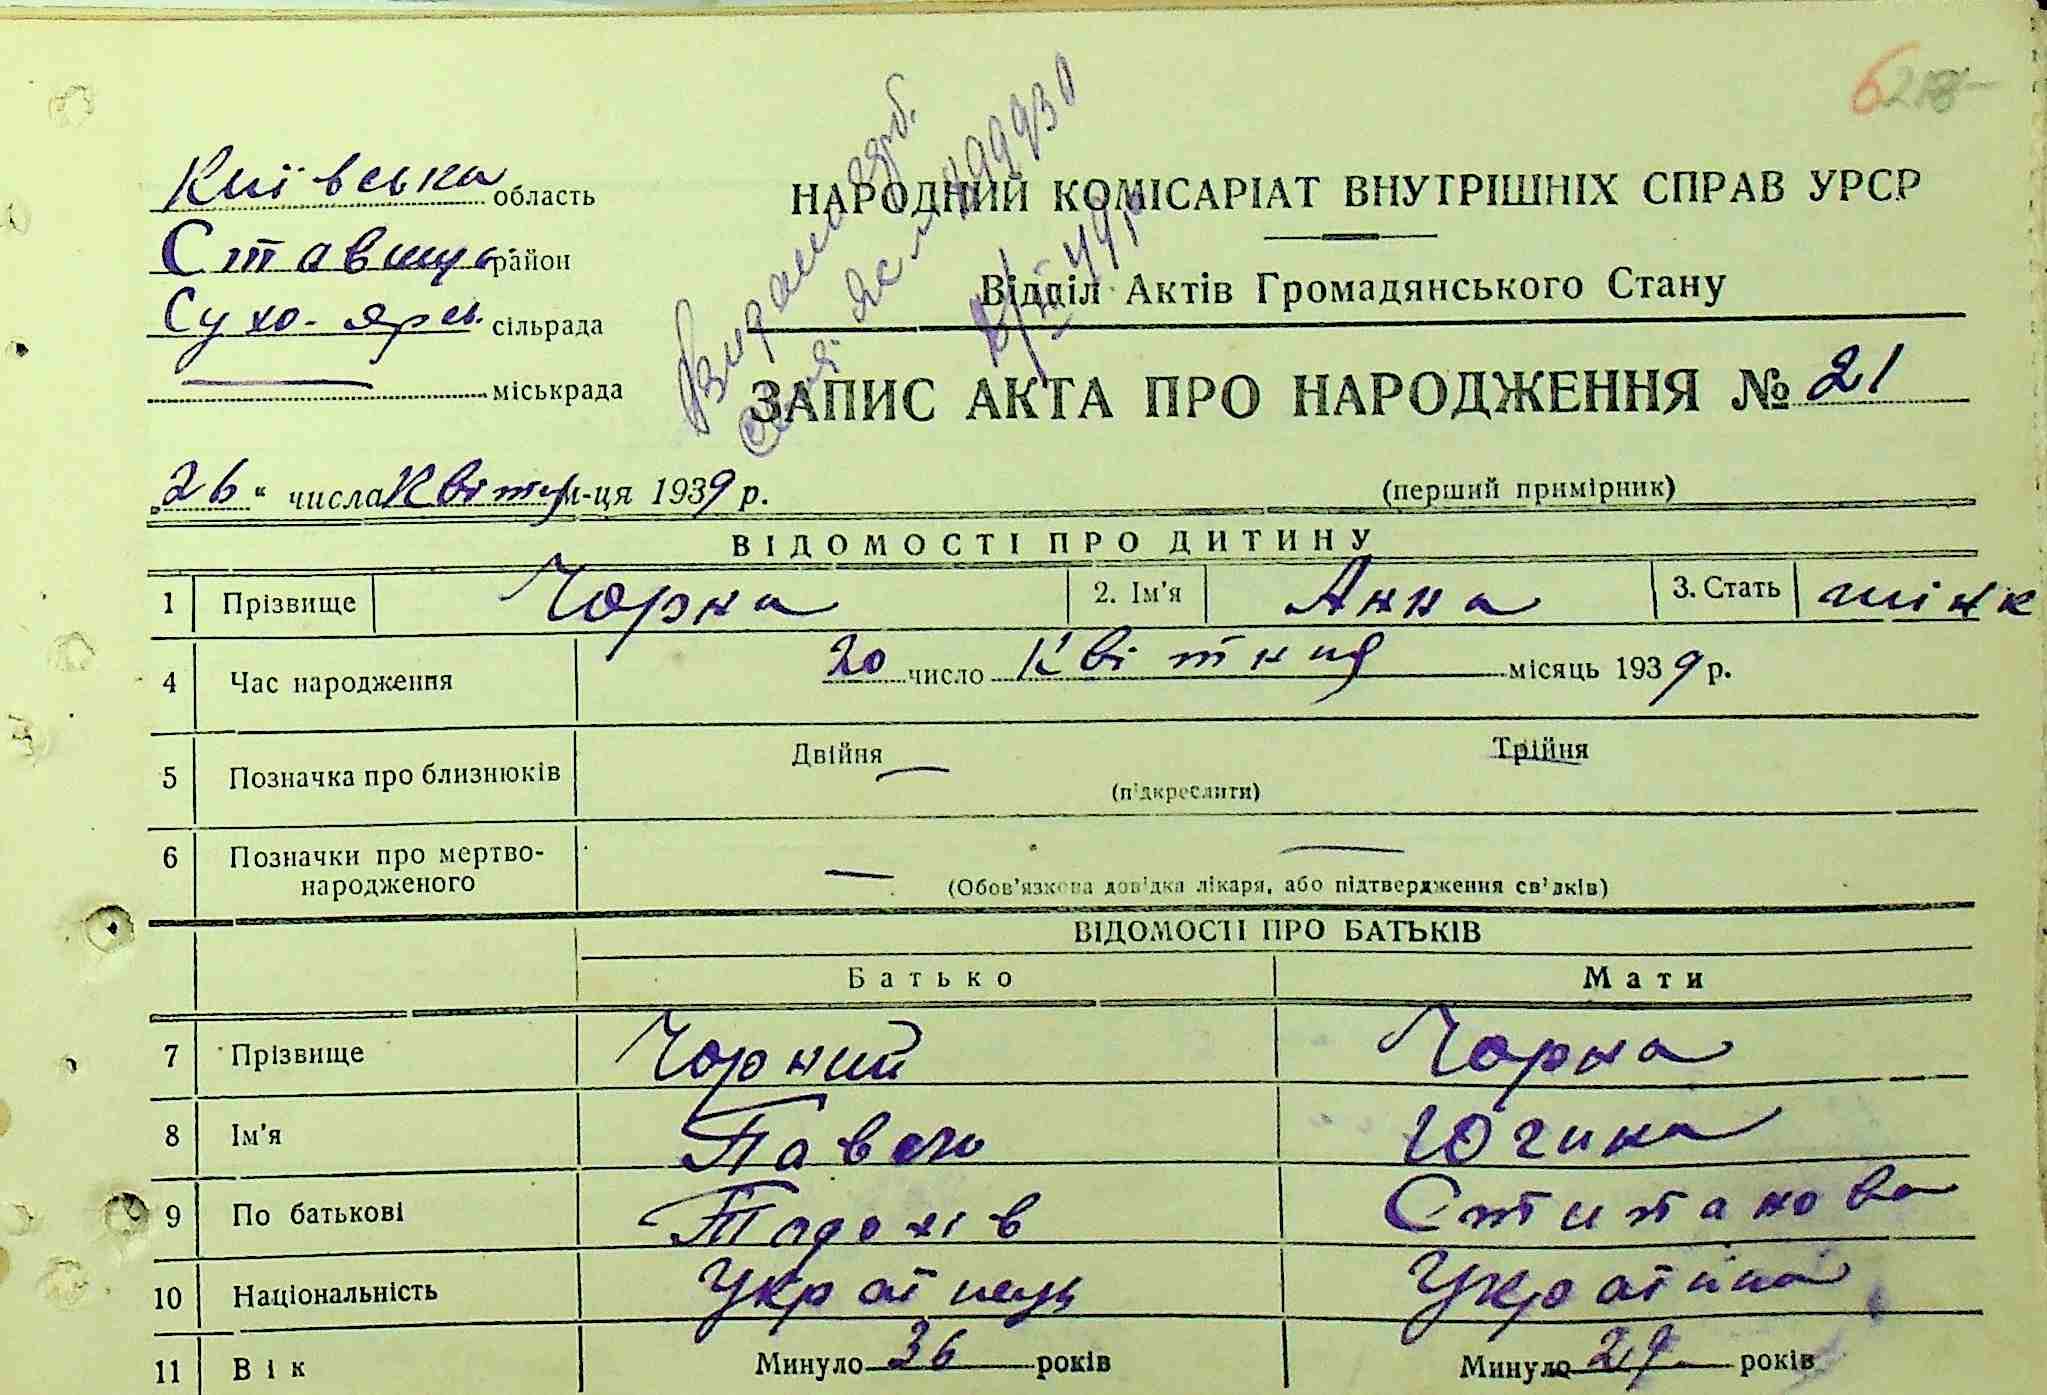 6 218
Київська область
НАРОДНИЙ КОМІСАРІАТ ВНУТРІШНІХ СПРАВ УРСР
Ставищ район
Відділ Актів Громадянського Стану
Сухо-ярсь. сільрада
міськрада
ЗАПИС АКТА ПРО НАРОДЖЕННЯ № 21
„26“ числа Квітня м-ця 1939 р.
(перший примірник)
ВІДОМОСТІ ПРО ДИТИНУ
1 Прізвище Чорна 2. Ім'я Анна 3. Стать жінк
4 Час народження 20 число Квітня місяць 1939 р.
5 Позначка про близнюків Двійня Трійня
(підкреслити)
6 Позначки про мертво-
народженого
(Обов'язкова довідка лікаря, або підтвердження св'дків)
ВІДОМОСТІ ПРО БАТЬКІВ
Батько Мати
7 Прізвище Чорний Чорна
8 Ім'я Павло Югина
9 По батькові Стипанова
10 Національність Украінець Украінка
11 Вік Минуло 36 років Минуло 29 років